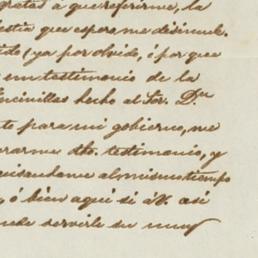 á que referirme, la
que espera me disimule.
(ya por olvido, ó por que
en testimonio de la
Encinillas hecho al Sor. Dn.
para mi gobierno, me
dho. testimonio, y
al mismo tiempo
, ó bien aquí si á V. así
servirle su muy